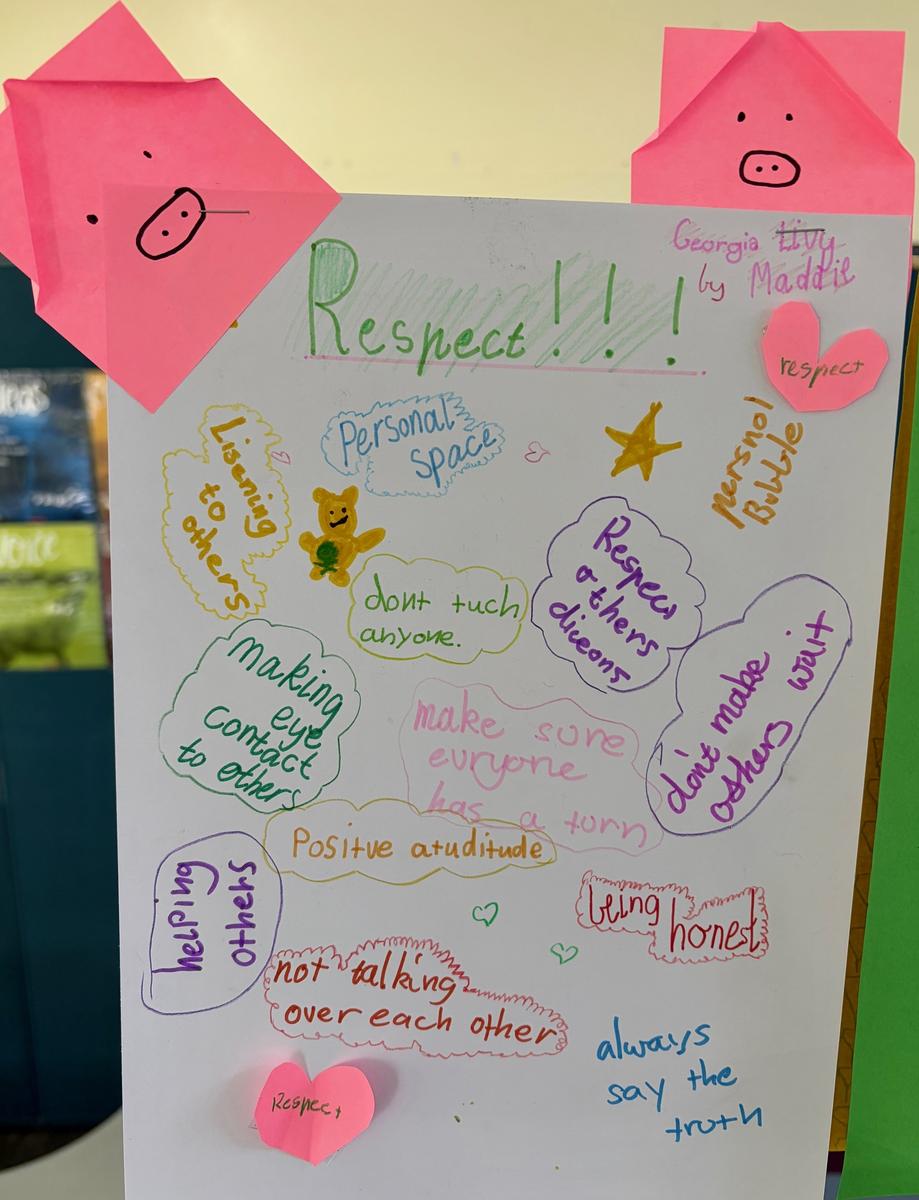 Respect!!!
Georgia Livy
by Maddie
respect
Personal
space
Lisening
to
others
persnol
Bubble
dont tuch
anyone.
Respecs
others
diceons
making
eye
contact
to others
make sure
euryone
has a turn
don't make
others wait
Positve atuditude
helping
others
being
honest
not talking
over each other
always
say the
truth
Respect